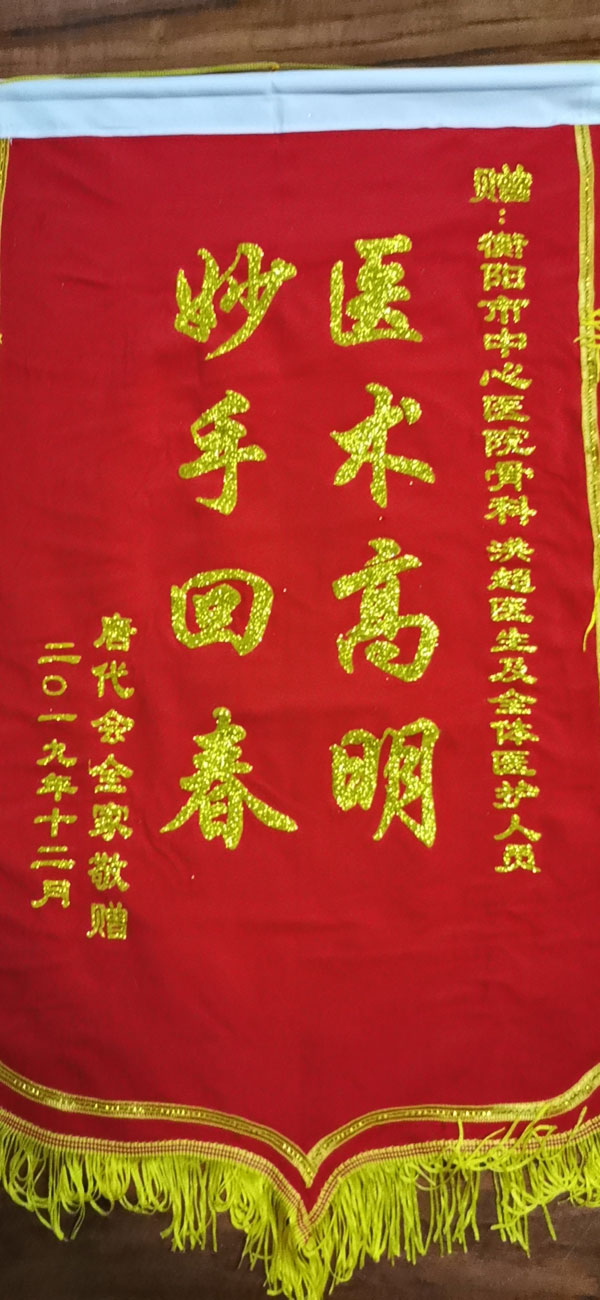 赠：衡阳市中心医院骨科 洪超医生及全体医护人员
医术高明
妙手回春
唐代会全家敬赠
二〇一九年十二月